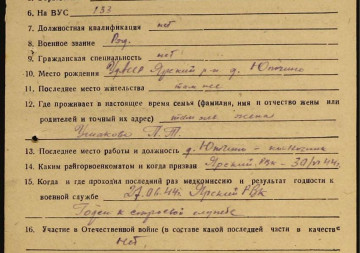 6. На ВУС 133
7. Должностная квалификация нет
8. Военное звание Ряд.
9. Гражданская специальность нет
10. Место рождения УАССР Ярский р-н д. Юпчино
11. Последнее место жительства там же
12. Где проживает в настоящее время семья (фамилия, имя и отчество жены или
родителей и точный их адрес) там же жена
Ушакова А. Т.
13. Последнее место работы и должность д. Юпчино
14. Каким райгорвоенкоматом и когда призван Ярский РВК
15. Когда и где проходил последний раз медкомиссию и результат годности к
военной службе 27.06.44г. Ярский РВК
Годен к строевой службе
16. Участие в Отечественной войне (в составе какой последней части в качестве
Нет